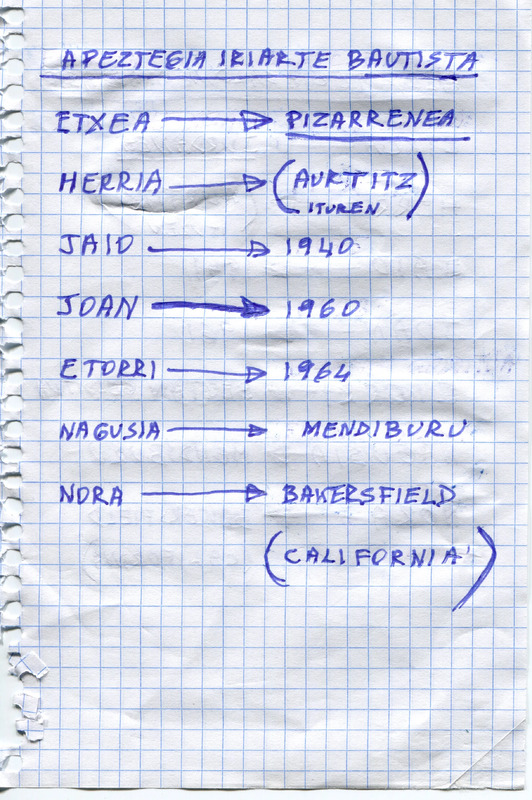 APEZTEGIA IRIARTE BAUTISTA
ETXEA → PIZARRENEA
HERRIA → (AURTITZ
ITUREN)
JAIO → 1940
JOAN → 1960
ETORRI → 1964
NAGUSIA → MENDIBURU
NORA → BAKERSFIELD
(CALIFORNIA)